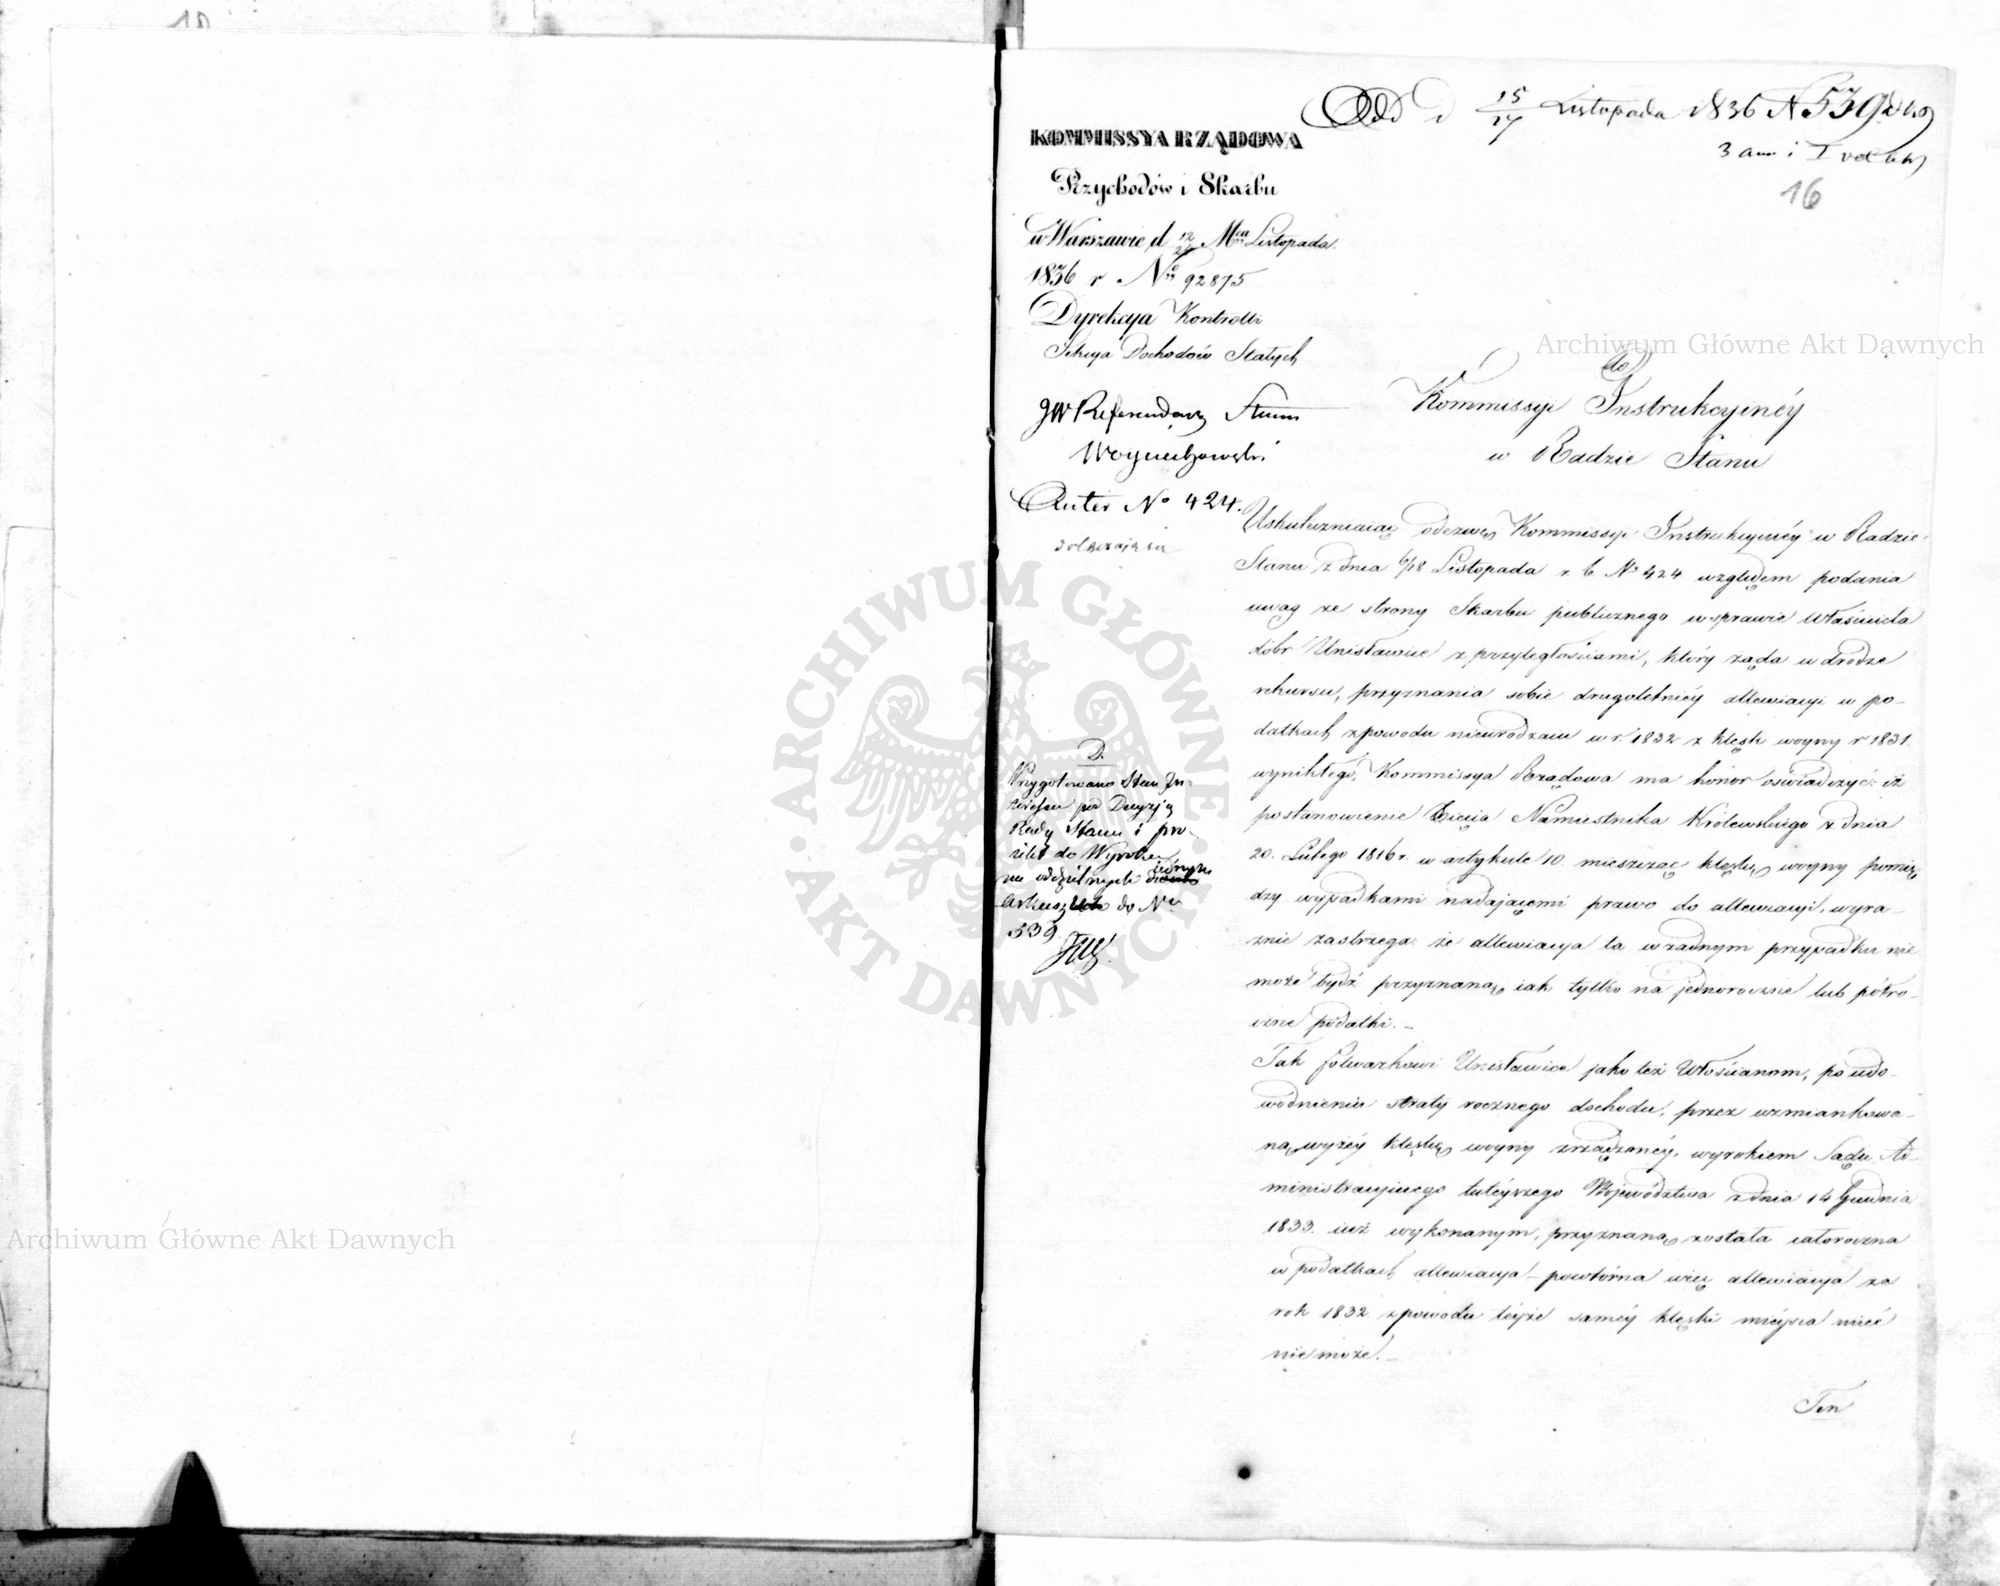 Odd d 15/27 Listopada 1836 N 539
3 ann i I vol
16
KOMMISSYA RZĄDOWA
Przychodów i Skarbu
w Warszawie, d 12/24 Mca Listopada
1836 r No 92875
Dyrekcya Kontrolli
Sekcya Dochodów Stałych
JW Referendarz Stanu
Woyciechowski
Auter No 424.
do
Kommissyi Instrukcyinéy
w Radzie Stanu
Uskuteczniaiąc odezwę Kommissyi Instrukcyinéy w Radzie
Stanu z dnia 6/18 Listopada r. b. No 424 względem podania
uwag ze strony Skarbu publicznego w sprawie Właściciela
dóbr Unisławice z przyległościami, który żąda w drodze
rekursu, przyznania sobie drugoletniéy allewiacyi w po-
datkach z powodu nieurodzaiu w r. 1832 z klęsk woyny r 1831.
wynikłego, Kommissya Rządowa ma honor oświadczyć: iż
postanowienie Xięcia Namiestnika Królewskiego z dnia
20. Lutego 1816 r. w artykule 10. mieszcząc klęskę woyny pomię
dzy wypadkami nadającemi prawo do allewiacyi, wyra-
źnie zastrzega: że allewiacya ta w żadnym przypadku nie
może bydź przyznaną, iak tylko na jednoroczne lub półro-
czne podatki. –
Tak folwarkowi Unisławice jako też Włościanom, po udo-
wodnieniu straty rocznego dochodu, przez wzmiankowa-
ną wyżéy klęskę woyny zrządzonéy, wyrokiem Sądu Ad-
ministracyjnego tutéyszego Województwa z dnia 14 Grudnia
1833. iuż wykonanym, przyznaną została całoroczna
w podatkach allewiacya – powtórna więc allewiacya za
rok 1832 z powodu téyże saméy klęski miéysca mieć
nie może. –
Ten
D.
Przygotowano Stan In-
teressu po Decyzją
Rady Stanu i pro-
jekt do Wyroku
na oddzielnych
do Nru
539.
Archiwum Główne Akt Dawnych
Archiwum Główne Akt Dawnych
ARCHIWUM GŁÓWNE AKT DAWNYCH